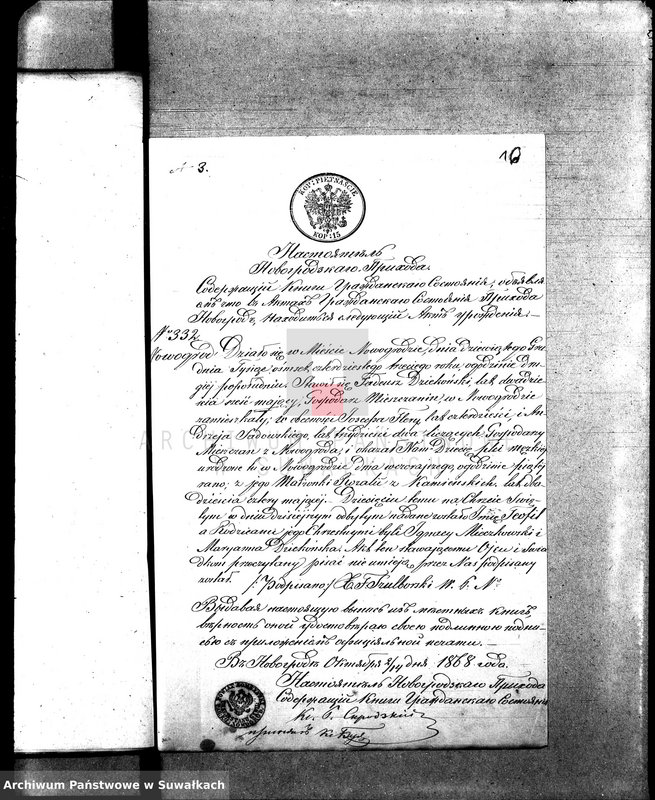 № 3.
16
KOP: PIĘTNAŚCIE
KOP: 15
Настоятель
Новогродзкаго Прихода
Содержащій Книги Гражданскаго Состоянія, объявля
етъ что въ Актахъ Гражданскаго Состоянія Прихода
Новогродъ, находиться слѣдующій Актъ урожденія:—
№ 332
Nowogród Działo się w Mieście Nowogrodzie, dnia dziewiątego Gru
dnia Tysiąc ośmset czterdziestego trzeciego roku, o godzinie dru
giej popołudniu. Stawił się Tadeusz Dzichoński, lat dwadzie
ścia mający, Gospodarz Mieszczanin, w Nowogrodzie
zamieszkały, w obecności Jozefa lat czterdzieści i An
drzeja Sadowskiego, lat trzydzieści dwa liczących Gospodarzy
Mieszczan z Nowogroda, i okazał Nam Dziecię płci męzkiej
urodzone tu w Nowogrodzie dnia wczorajszego, o godzinie piątej
rano, z jego Małżonki Rozalii z Kamińskich lat dwa
dzieścia cztery mającej. Dziecięciu temu na Chrzcie Świę
tym w dniu dzisiejszym odbytym nadane zostało Imię Teofil
a Rodzicami jego Chrzestnymi byli Ignacy Mieczkowski i
Maryanna Dzichońska. Akt ten stawającemu Ojcu i Świa
dkom przeczytany pisać nie umieją, przez Nas podpisany
został. /: Podpisano:/ X. F. Szulborski
Выдавая настоящую выпись изъ мѣстныхъ книгъ,
вѣрность оной удостовѣряю своею подлинною подпи
сью съ приложеніемъ оффиціальной печати. —
Въ Новогродѣ Октября 2/14 дня 1868 года.
Настоятель Новогродзкаго Прихода
Содержащій Книги Гражданскаго Состоянія
Кс.
ARCHIWUM PAŃSTWOWE
Archiwum Państwowe w Suwałkach